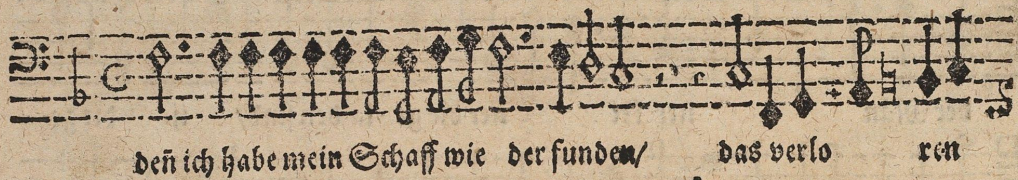 deñ ich habe mein Schaff wie der funden/ das verlo ren